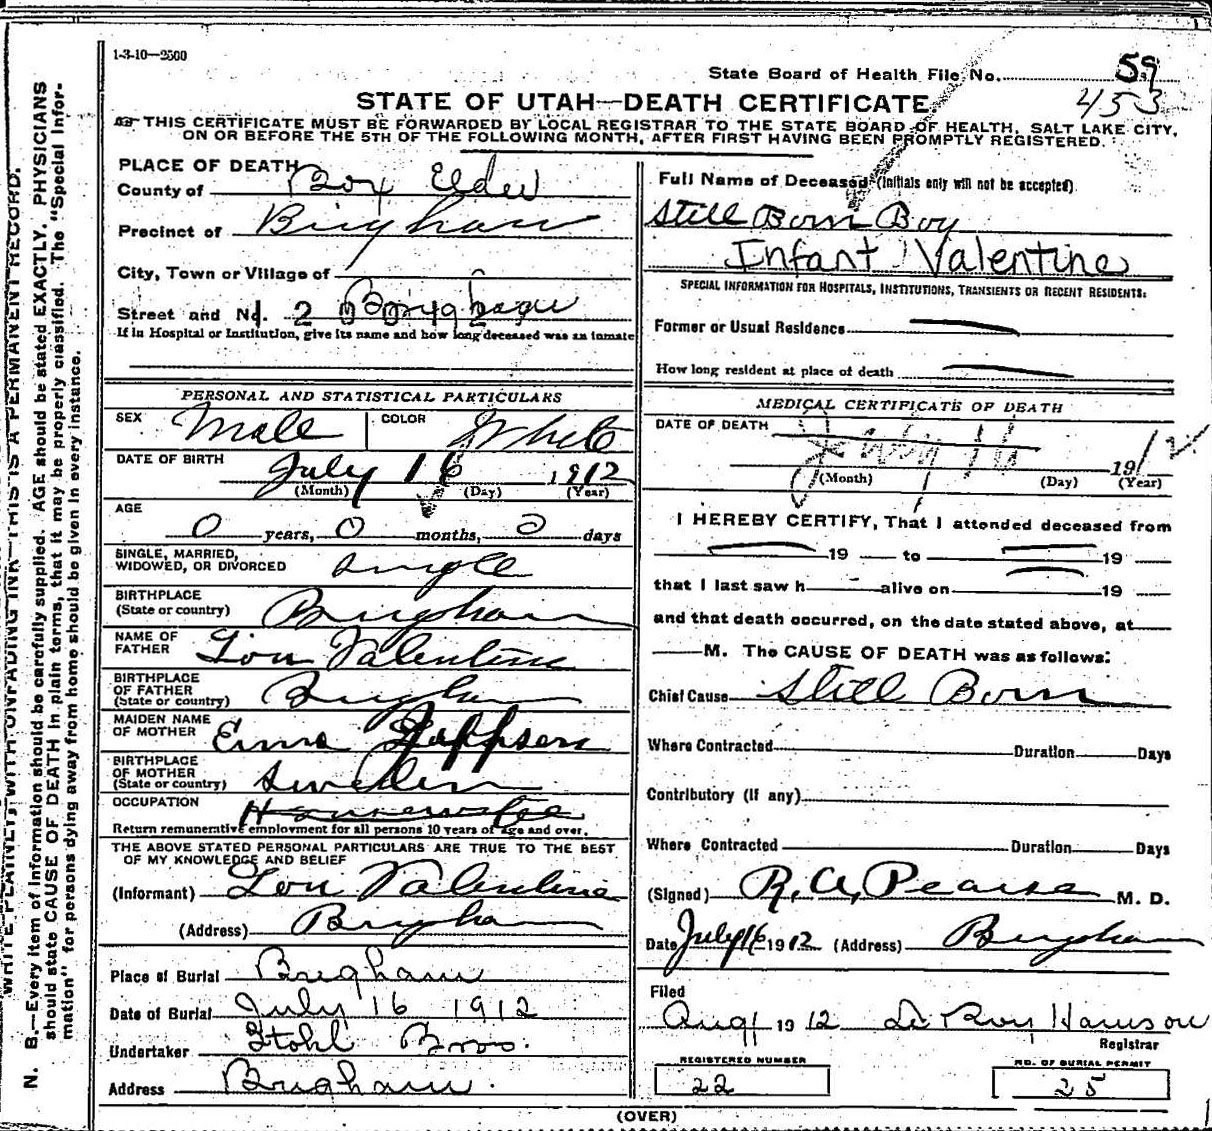 1-3-10—2500
State Board of Health File No. 59
453
STATE OF UTAH—DEATH CERTIFICATE.
THIS CERTIFICATE MUST BE FORWARDED BY LOCAL REGISTRAR TO THE STATE BOARD OF HEALTH, SALT LAKE CITY,
ON OR BEFORE THE 5TH OF THE FOLLOWING MONTH, AFTER FIRST HAVING BEEN PROMPTLY REGISTERED.
PLACE OF DEATH
County of Box Elder
Precinct of Brigham
City, Town or Village of
Street and No. 2 Brigham
If in Hospital or Institution, give its name and how long deceased was an inmate
PERSONAL AND STATISTICAL PARTICULARS
SEX Male COLOR White
DATE OF BIRTH July 16 1912
(Month) (Day) (Year)
AGE
0 years, 0 months, 0 days
SINGLE, MARRIED,
WIDOWED, OR DIVORCED Single
BIRTHPLACE
(State or country) Brigham
NAME OF
FATHER Lou Valentine
BIRTHPLACE
OF FATHER
(State or country) Brigham
MAIDEN NAME
OF MOTHER Emma Jeppson
BIRTHPLACE
OF MOTHER
(State or country) Sweden
OCCUPATION Housewife
Return remunerative employment for all persons 10 years of age and over.
THE ABOVE STATED PERSONAL PARTICULARS ARE TRUE TO THE BEST
OF MY KNOWLEDGE AND BELIEF
(Informant) Lou Valentine
(Address) Brigham
Place of Burial Brigham
Date of Burial July 16 1912
Undertaker Stohl Bros.
Address Brigham.
Full Name of Deceased (Initials only will not be accepted)
Still Born Boy
Infant Valentine
SPECIAL INFORMATION FOR HOSPITALS, INSTITUTIONS, TRANSIENTS OR RECENT RESIDENTS:
Former or Usual Residence
How long resident at place of death
MEDICAL CERTIFICATE OF DEATH
DATE OF DEATH
July 16 1912
(Month) (Day) (Year)
I HEREBY CERTIFY, That I attended deceased from
19 to 19
that I last saw h alive on 19
and that death occurred, on the date stated above, at
M. The CAUSE OF DEATH was as follows:
Chief Cause Still Born
Where Contracted Duration Days
Contributory (if any)
Where Contracted Duration Days
(Signed) R. A. Pearse M. D.
Date July 16 1912 (Address) Brigham
Filed
Aug 1 1912 Le Roy Harrison
Registrar
REGISTERED NUMBER
22
NO. OF BURIAL PERMIT
25
(OVER)
WRITE PLAINLY, WITH UNFADING INK—THIS IS A PERMANENT RECORD.
N. B.—Every item of information should be carefully supplied. AGE should be stated EXACTLY. PHYSICIANS
should state CAUSE OF DEATH in plain terms, that it may be properly classified. The "Special Infor-
mation" for persons dying away from home should be given in every instance.